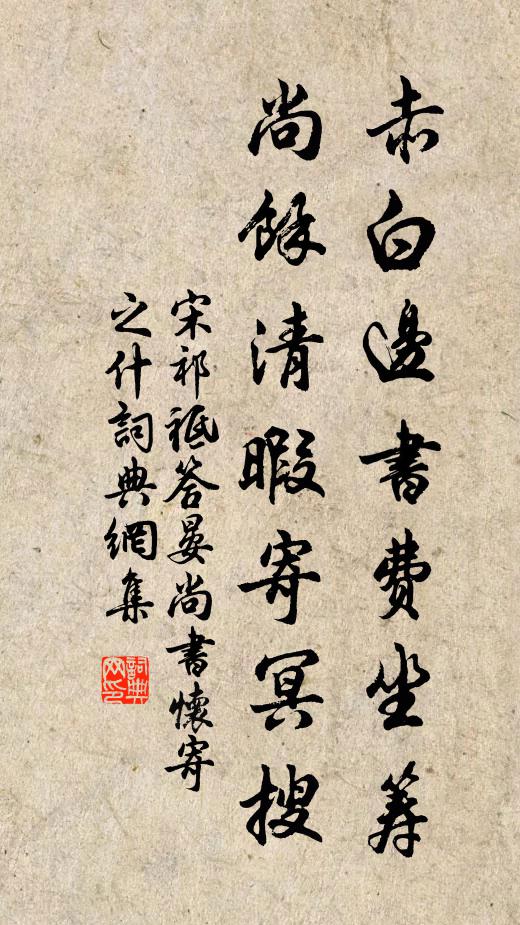 赤白邊書費坐筭
尚餘清暇寄冥搜
宋祁祗答晏尚書懷寄
之什詞典網集
詞典
网